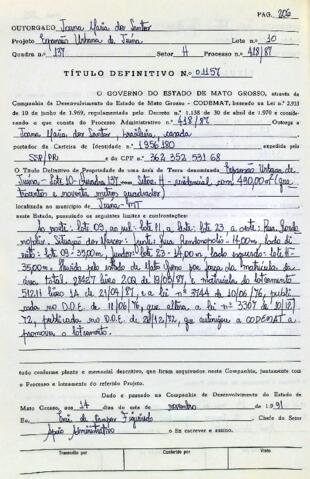 PAG. 206
OUTORGADO Joana Maria dos Santos
Projeto Expansão Urbana de Juína Lote n.o 10
Quadra n.o 137 Setor H Processo n.o 418/87
TÍTULO DEFINITIVO N.o 01157
O GOVERNO DO ESTADO DE MATO GROSSO, através da
Companhia de Desenvolvimento do Estado de Mato Grosso - CODEMAT, com base na Lei n.o 2.913
de 10 de junho de 1.969, regulamentada pelo Decreto n.o 1.138 de 30 de abril de 1.970 e considerando
o que consta do Processo Administrativo n.o 418/87 Outorga a
Joana Maria dos Santos, brasileira, casada
portador da Carteira de Identidade n.o 1956180 expedida pela
SSP/PR e do CPF n.o 362 352 531 68
O Título Definitivo de Propriedade de uma área de Terra denominada Expansão Urbana de
Juína - Lote 10 - Quadra 137 - Setor H - residencial, com 490,00m² (quatrocentos
e noventa metros quadrados)
localizada no município de Juína - MT
neste Estado, passando os seguintes limites e confrontações:
Ao norte: lote 09, ao sul: lote 11, a leste: lote 23, a oeste: Rua Rondonópolis.
Situação dos Marcos: frente: Rua Rondonópolis - 14,00m, lado direito:
lote 09 - 35,00m, fundos: lote 23 - 14,00m, lado esquerdo: lote 11 -
35,00m. Havido pelo estado de Mato Grosso por força da matrícula da
área total, livro 2 de 19/08/87, e matrícula do loteamento
livro de 21/09/87, e a lei nº 3744 de 10/06/76, publicada
no D.O.E. de 11/06/76, que altera a lei nº 3307 de 18/12/
72, publicada no D.O.E. de 22/12/72, que autorizou a CODEMAT a
promover o loteamento.
tudo conforme planta e memorial descritivo, que ficam arquivados nesta Companhia, juntamente com
o Processo e loteamento do referido Projeto.
Dado e passado na Companhia de Desenvolvimento do Estado de
Mato Grosso, aos 14 dias do mês de novembro de 1.991
Eu, de Campos Figueiredo Chefe do Setor
Apoio Administrativo o fiz escrever e assino.
Transcrito por Conferido por Visto